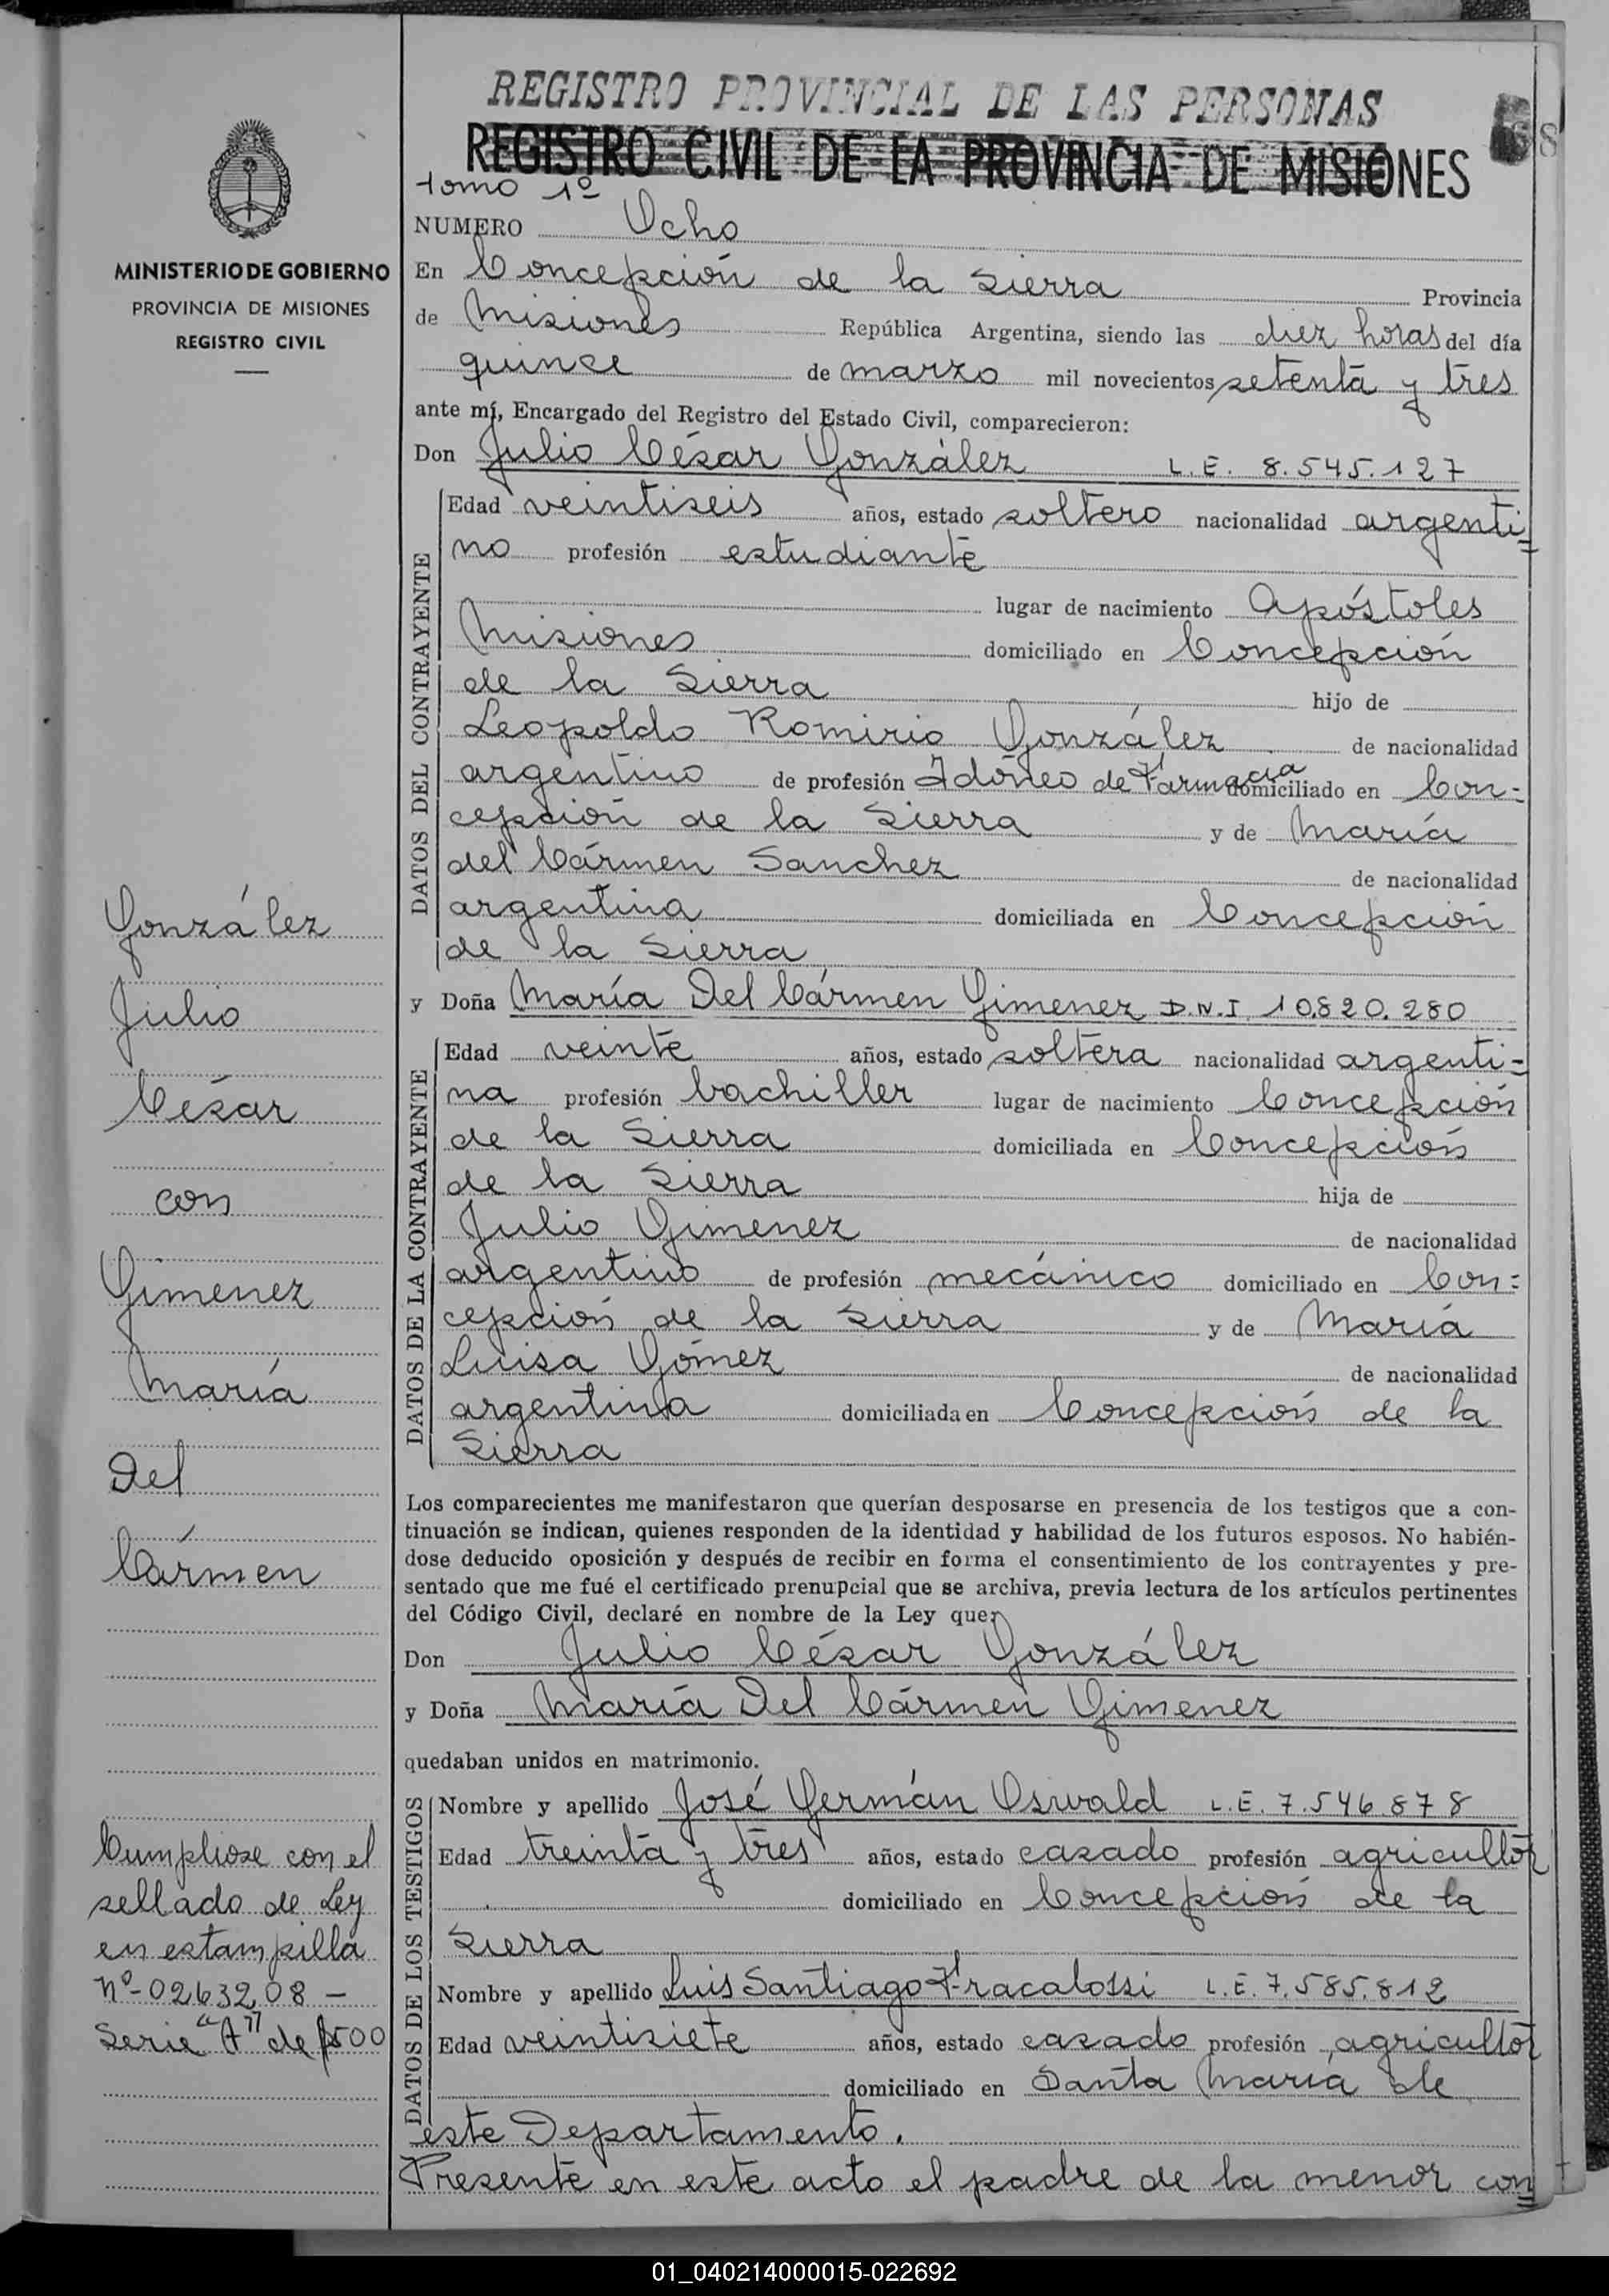 REGISTRO PROVINCIAL DE LAS PERSONAS
REGISTRO CIVIL DE LA PROVINCIA DE MISIONES
8
tomo 1º
NUMERO Ocho
En Concepción de la Sierra Provincia
de Misiones República Argentina, siendo las diez horas del día
quince de marzo mil novecientos setenta y tres
ante mí, Encargado del Registro del Estado Civil, comparecieron:
Don Julio César González L.E. 8.545.127
DATOS DEL CONTRAYENTE
Edad veintiseis años, estado soltero nacionalidad argenti=
no profesión estudiante
lugar de nacimiento Apóstoles
Misiones domiciliado en Concepción
de la Sierra hijo de
Leopoldo Romirio González de nacionalidad
argentino de profesión Idóneo de Farmacia domiciliado en Con=
cepción de la Sierra y de María
del Cármen Sanchez de nacionalidad
argentina domiciliada en Concepción
de la Sierra
y Doña María Del Cármen Gimenez D.N.I. 10.820.280
DATOS DE LA CONTRAYENTE
Edad veinte años, estado soltera nacionalidad argenti=
na profesión bachiller lugar de nacimiento Concepción
de la Sierra domiciliada en Concepción
de la Sierra hija de
Julio Gimenez de nacionalidad
argentino de profesión mecánico domiciliado en Con=
cepción de la Sierra y de María
Luisa Gómez de nacionalidad
argentina domiciliada en Concepción de la
Sierra
Los comparecientes me manifestaron que querían desposarse en presencia de los testigos que a con-
tinuación se indican, quienes responden de la identidad y habilidad de los futuros esposos. No habién-
dose deducido oposición y después de recibir en forma el consentimiento de los contrayentes y pre-
sentado que me fué el certificado prenupcial que se archiva, previa lectura de los artículos pertinentes
del Código Civil, declaré en nombre de la Ley que:
Don Julio César González
y Doña María Del Cármen Gimenez
quedaban unidos en matrimonio.
DATOS DE LOS TESTIGOS
Nombre y apellido José Germán Oswald L.E. 7.546.878
Edad treinta y tres años, estado casado profesión agricultor
domiciliado en Concepción de la
Sierra
Nombre y apellido Luis Santiago Fracalossi L.E. 7.585.812
Edad veintisiete años, estado casado profesión agricultor
domiciliado en Santa María de
este Departamento.
Presente en este acto el padre de la menor con=
MINISTERIO DE GOBIERNO
PROVINCIA DE MISIONES
REGISTRO CIVIL
González
Julio
César
con
Gimenez
María
Del
Cármen
Cumpliose con el
sellado de Ley
en estampilla
Nº-0263208-
Serie "A" de $500
01_040214000015-022692